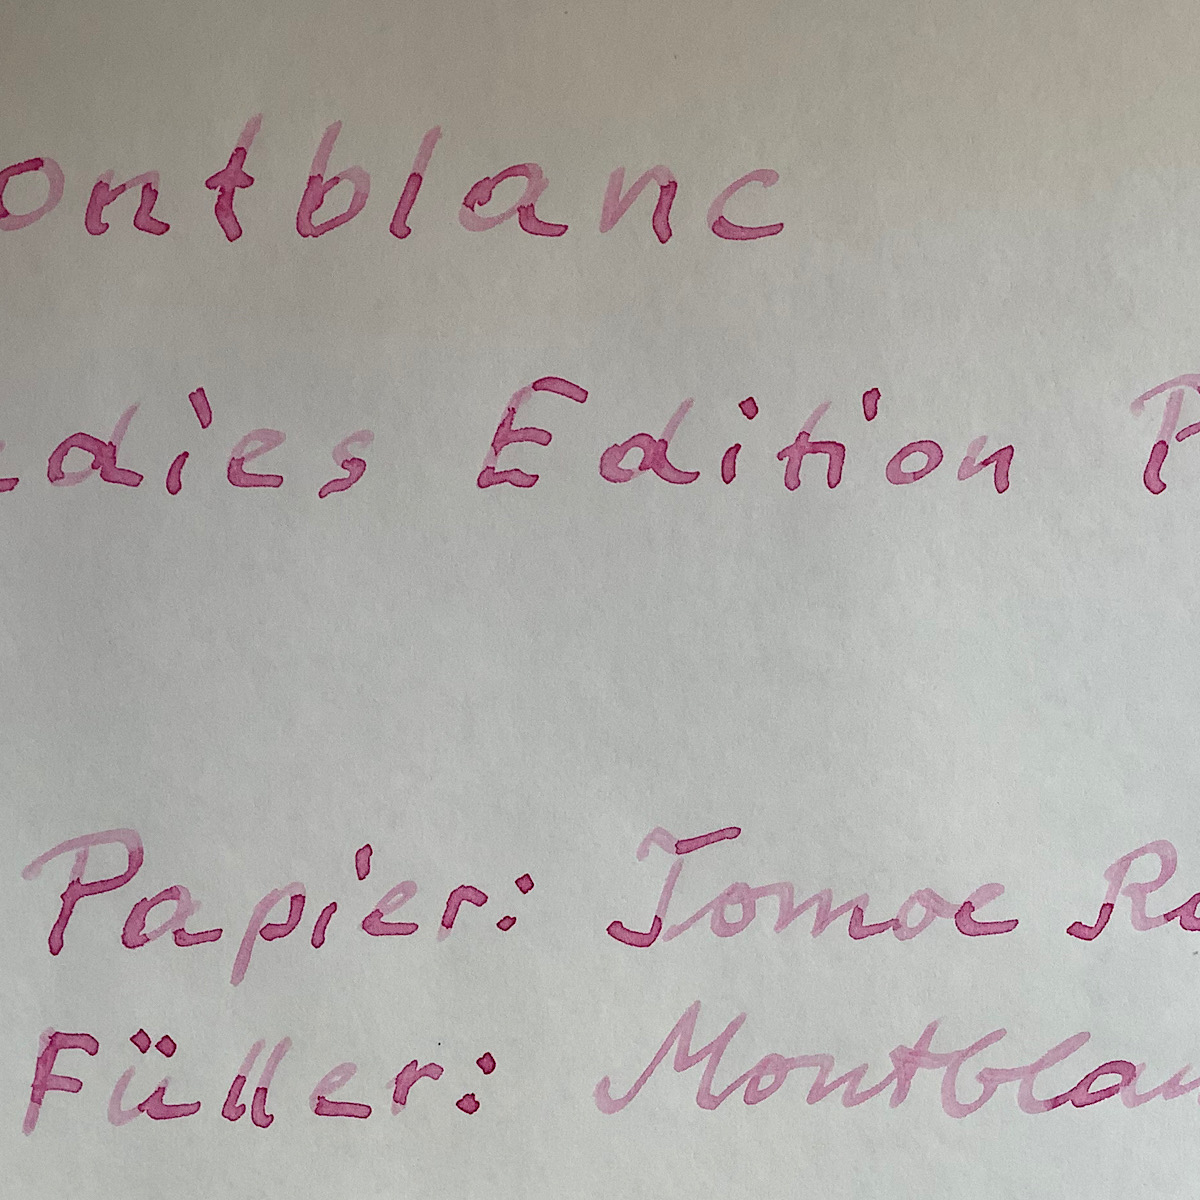 ontblanc
adies Edition P
Papier: Tomoe R
Füller: Montblan